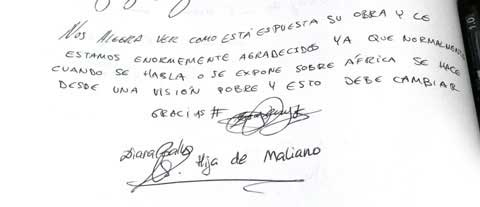 NOS ALEGRA VER COMO ESTÁ ESPUESTA SU OBRA Y LE
ESTAMOS ENORMEMENTE AGRADECIDOS YA QUE NORMALMENTE
CUANDO SE HABLA O SE EXPONE SOBRE ÁFRICA SE HACE
DESDE UNA VISIÓN POBRE Y ESTO DEBE CAMBIAR
GRACIAS #
Diana
Hija de Maliano